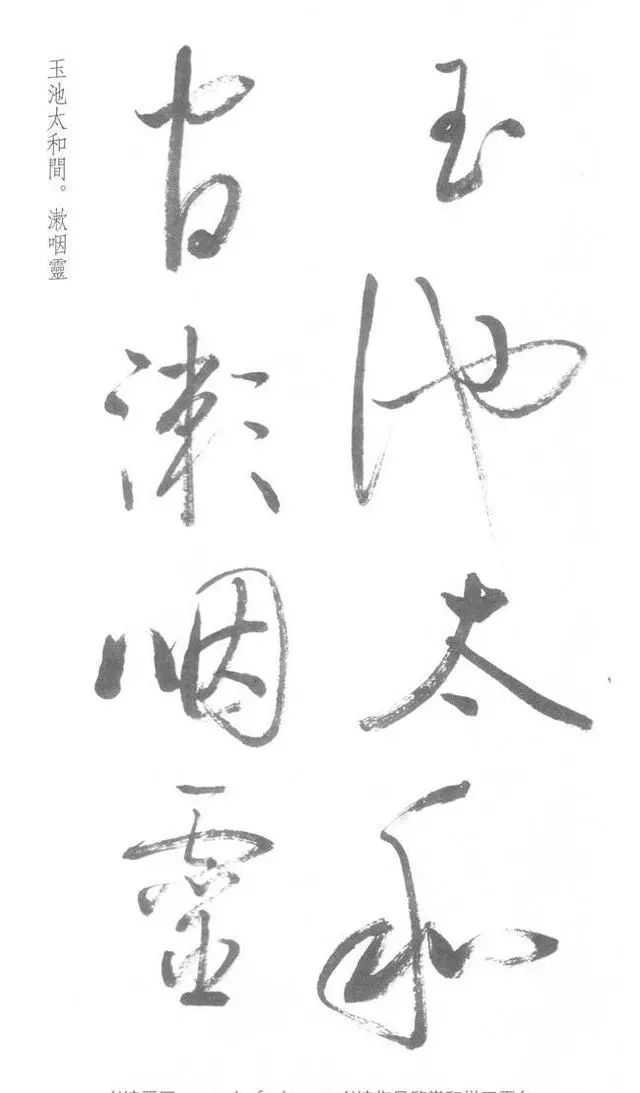 玉池太和
官漱咽靈
玉池太和間。漱咽靈